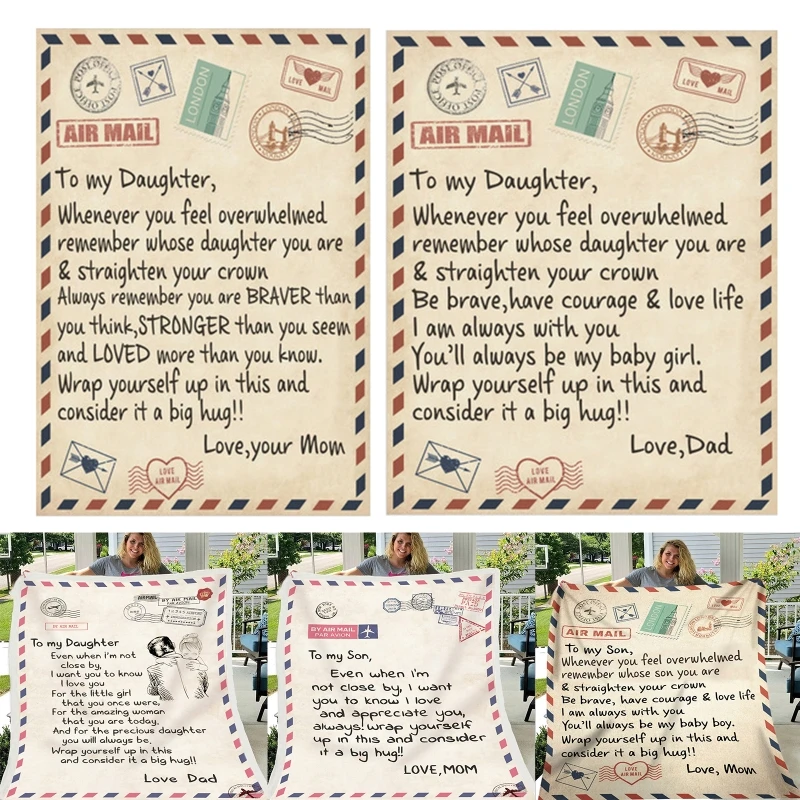 POST OFFICE
POST OFFICE
LONDON
LOVE MAIL
AIR MAIL
To my Daughter,
Whenever you feel overwhelmed
remember whose daughter you are
& straighten your crown
Always remember you are BRAVER than
you think,STRONGER than you seem
and LOVED more than you know.
Wrap yourself up in this and
consider it a big hug!!
Love,your Mom
LOVE
AIR MAIL
POST OFFICE
POST OFFICE
LONDON
LOVE MAIL
AIR MAIL
To my Daughter,
Whenever you feel overwhelmed
remember whose daughter you are
& straighten your crown
Be brave,have courage & love life
I am always with you
You'll always be my baby girl.
Wrap yourself up in this and
consider it a big hug!!
Love,Dad
LOVE
AIR MAIL
AIRMAIL
BY AIR MAIL
PAR AVION
BY AIR MAIL
To my Daughter
Even when i'm not
close by,
I want you to know
I love you
For the little girl
that you once were,
For the amazing woman
that you are today,
And for the precious daughter
you will always be,
Wrap yourself up in this
and consider it a big hug!!
Love Dad
BY AIR MAIL
PAR AVION
To my Son,
Even when i'm
not close by, I want
you to know I love
and appreciate you,
always!wrap yourself
up in this and consider
it a big hug!!
LOVE,MOM
LONDON
LOVE MAIL
AIR MAIL
To my Son,
Whenever you feel overwhelmed
remember whose son you are
& straighten your crown
Be brave, have courage & love life
I am always with you
You'll always be my baby boy.
Wrap yourself up in this and
consider it a big hug!!
Love, Mom
LOVE
AIR MAIL